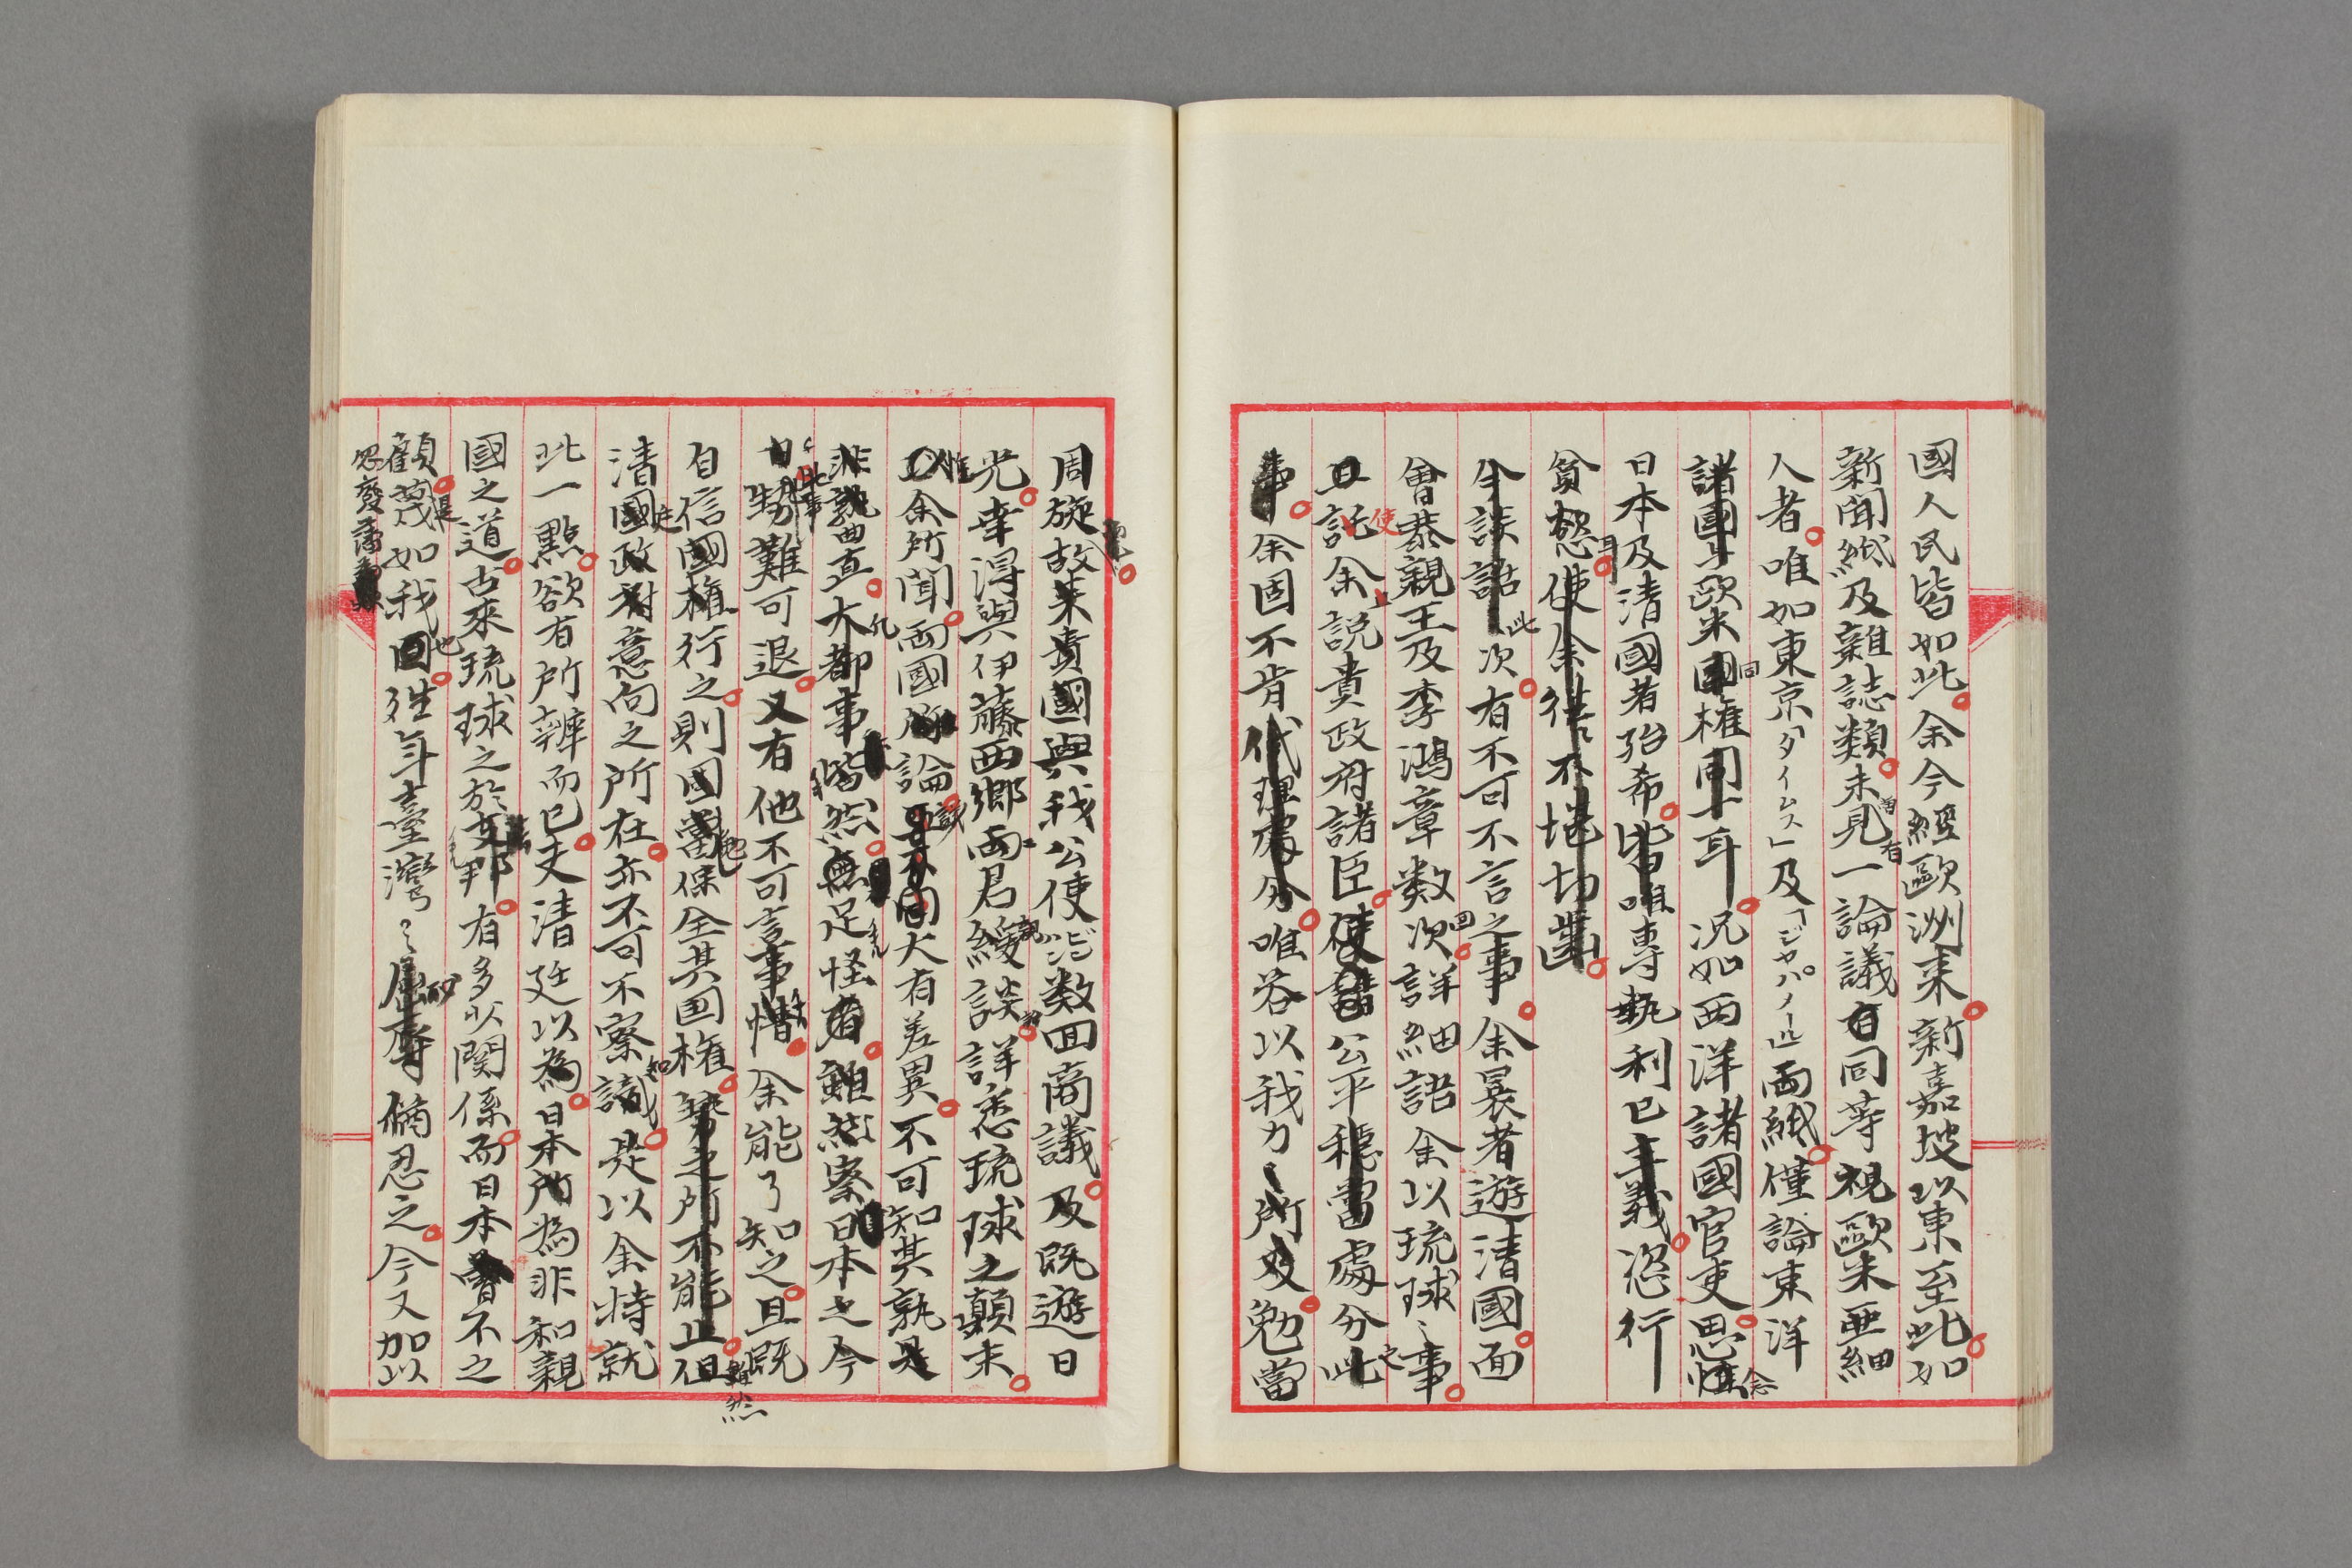 國人民皆如此余今經歐洲来新嘉坡以東至此如
新聞紙及雜誌類未曽見有一論議有同等視歐米亜細
人者唯如東京「タイムス」及「ジヤパノール」両紙僅論東洋
諸國与歐米國同權同一耳況如西洋諸國官吏思惟念
日本及清國者殆希皆唯專執利己主義恣行
貪慾耳使余徃〻不堪切齒
今談話此次有不可不言之事余曩者遊清國面
會恭親王及李鴻章数次回詳細語余以琉球〻事
且託使余説貴政府諸臣使公平穏當處分此
事余固不肯代理處分唯答以我力〻所及勉當
周旋故来貴國與我公使ビンハム数回商議及既遊日
光幸得與伊藤西郷両君緩談詳悉琉球之顛末
以惟余所聞両國論議大有差異不可知其孰是
非孰曲直凡大都事皆然無足怪者雖然察日本之今
日勢難可退又有他不可言事情余能了知之且既
自信國權行之則國當保全其国權勢之所不能止但雖然
清國政府意向之所在亦不可不察識知是以余特就
此一點欲有所辨而已夫清廷以為日本所為非和親
國之道古來琉球之於支邦有多少関係而日本曽不之
顧是蔑如我国也往年臺灣〻屈辱猶忍之今又加以